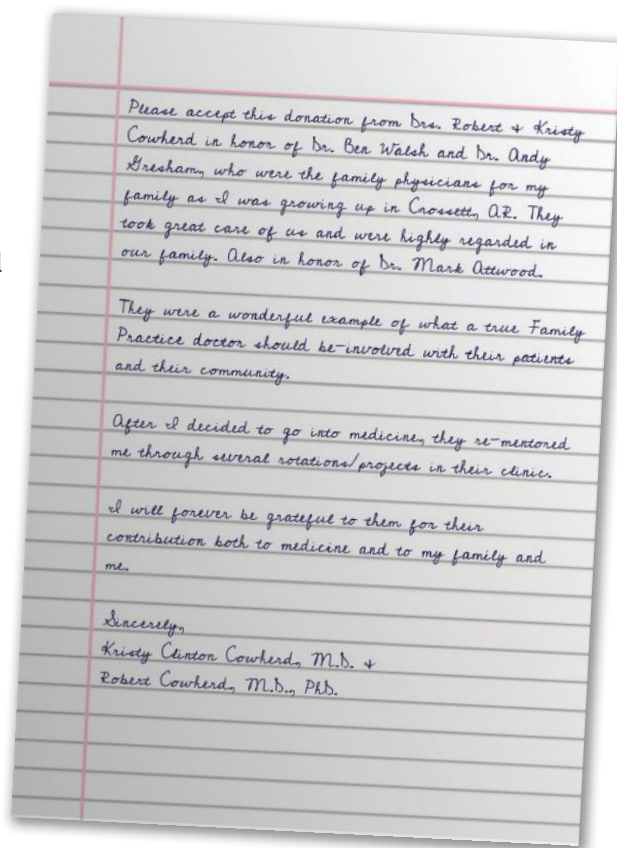 Please accept this donation from Drs. Robert & Kristy
Cowherd in honor of Dr. Ben Walsh and Dr. Andy
Gresham, who were the family physicians for my
family as I was growing up in Crossett, AR. They
took great care of us and were highly regarded in
our family. Also in honor of Dr. Mark Attwood.
They were a wonderful example of what a true Family
Practice doctor should be-involved with their patients
and their community.
After I decided to go into medicine, they re-mentored
me through several rotations/projects in their clinic.
I will forever be grateful to them for their
contribution both to medicine and to my family and
me.
Sincerely,
Kristy Clinton Cowherd, M.D. &
Robert Cowherd, M.D., PhD.